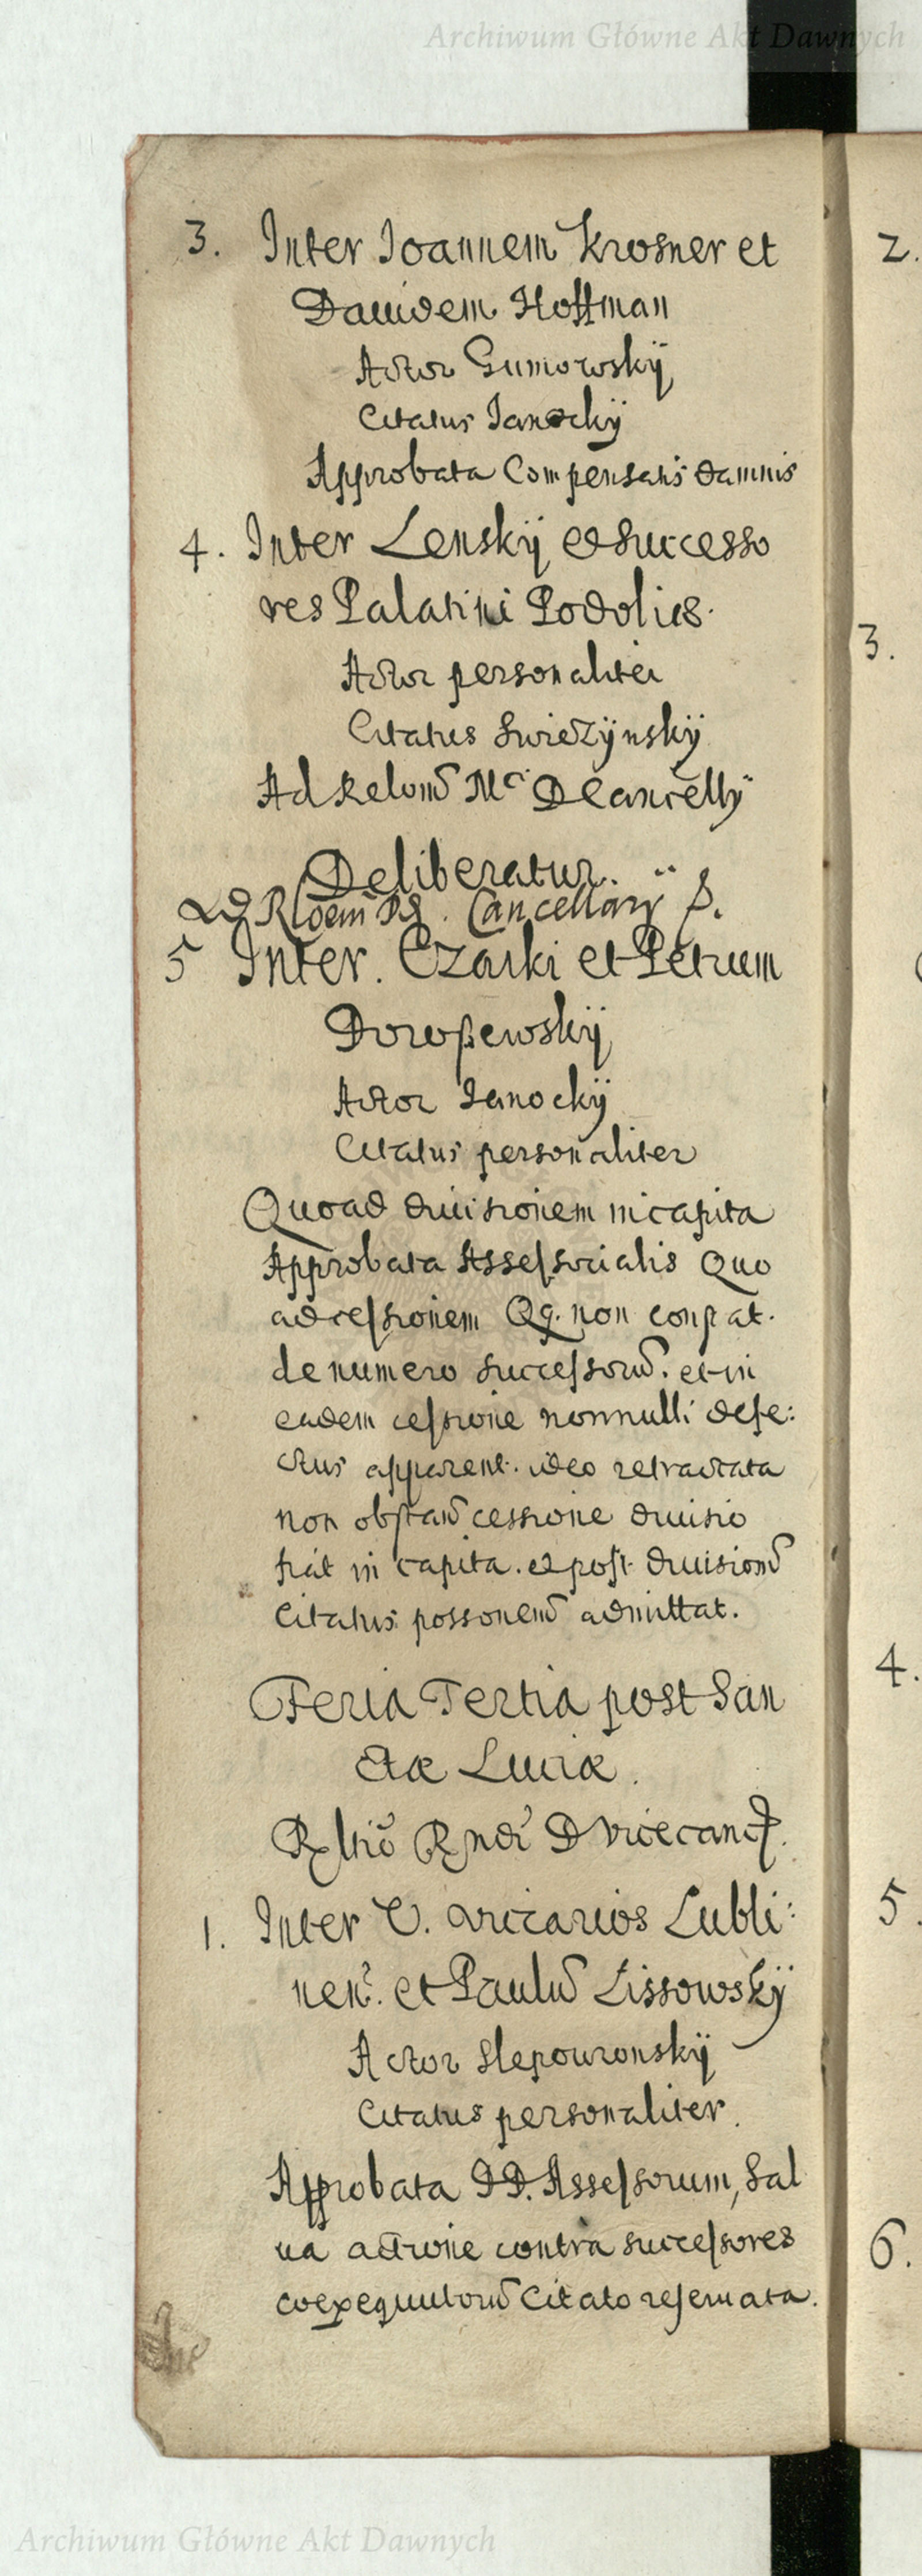 Archiwum Główne Akt Dawnych
3. Inter Ioannem Krosner et
Dauidem Hoffman
Actor Gumowskÿ
Citatus Janockÿ
Approbata Compensatis damnis
4. Inter Lenskÿ et Successo
res Palatini Podolies
Actor personaliter
Citatus Swieżÿnskÿ
Ad Relom̃ Mci D Cancellÿ
Deliberatur.
Ad Rloem PD. Cancellarÿ P.
5 Inter. Czarki et Petrum
Doroszewskÿ
Actor Janockÿ
Citatus personaliter
Quoad diuisionem in capita
Approbata Assessorialis Quo
ad cessionem Qq. non constat.
de numero successorũ. et in
eadem cessione nonnulli defe:
ctus apparent. ideo retractata
non obstañ cessione diuisio
fiat in capita. et post diuisionẽ
Citatus possonem̃ admittat.
Feria Tertia post San
ctæ Luciæ.
Rltio Rndi D vicecanc.
1. Inter V. vicarios Lubli:
nen. et Paulũ Lissowskÿ
Actor Slepowronskÿ
Citatus personaliter.
Approbata DD. Assessorum, Sal
ua actione contra successores
coexequutorũ Citato reseruata.
2.
3.
4.
5.
6.
Archiwum Główne Akt Dawnych